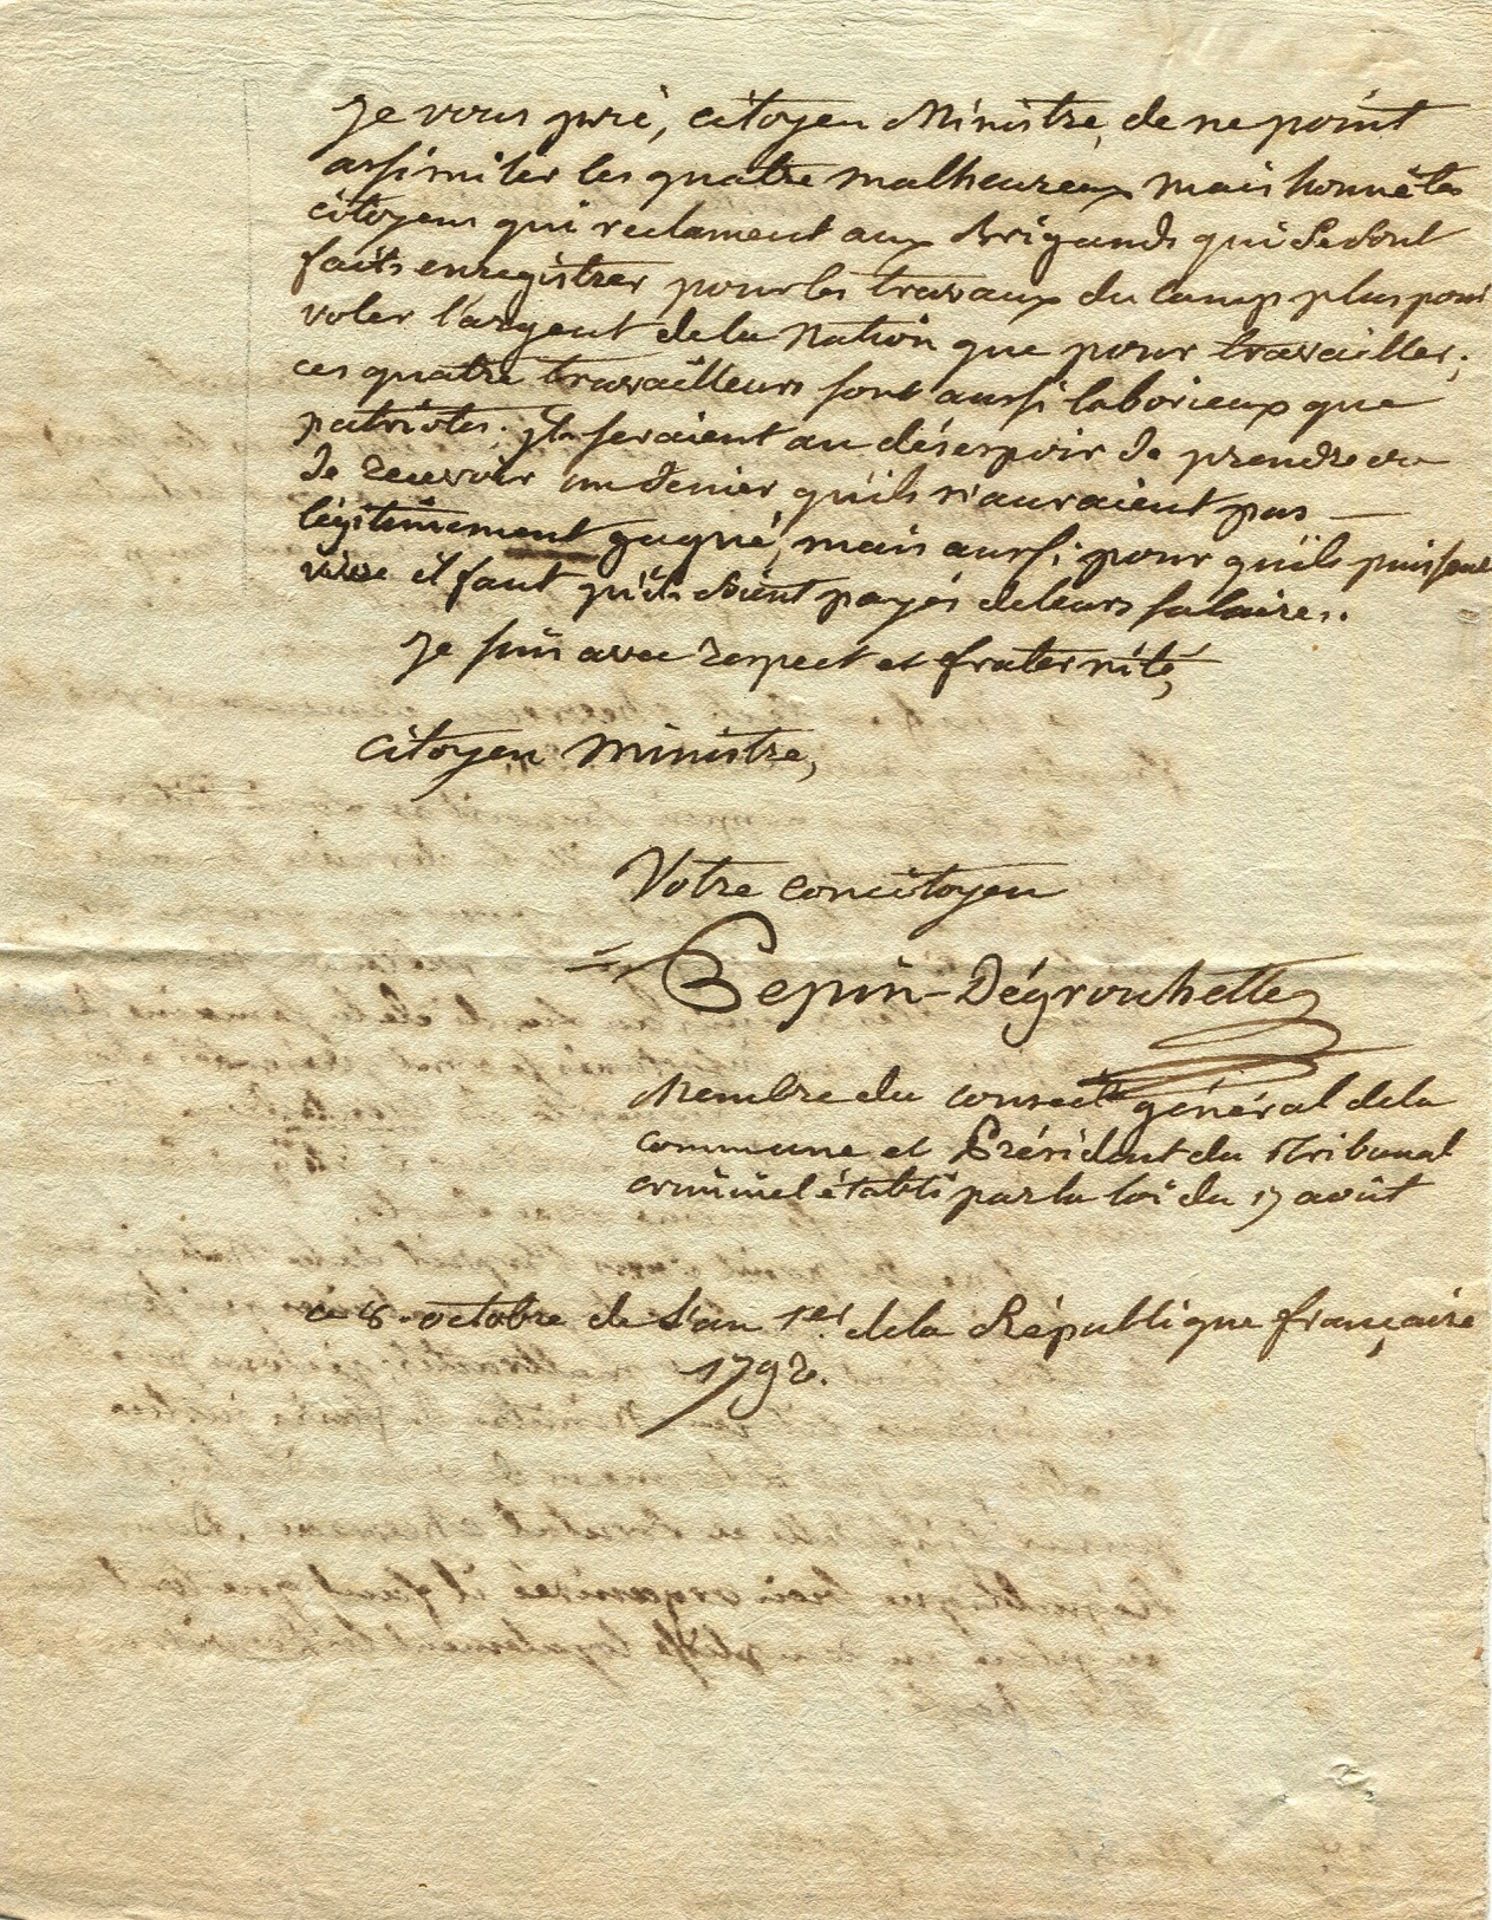 Je vous prie, citoyen Ministre, de ne point
assimiler les quatre malheureux mais honnêtes
citoyens qui reclament aux Brigands qui se sont
faits enregistrer pour les travaux du camp plus pour
voler l'argent de la Nation que pour travailler;
ces quatre travailleurs sont aussi laborieux que
patriotes. Ils seraient au désespoir de prendre ou
de recevoir un denier qu'ils n'auraient pas —
légitimement gagné, mais aussi pour qu'ils puissent
vivre il faut qu'ils soient payés de leurs salaires.
Je suis avec respect et fraternité,
Citoyen Ministre,
Votre concitoyen
Pepin-Dégrouhette
Membre du conseil général de la
commune et Président du Tribunal
criminel établi par la loi du 17 août
ce 8. octobre de l'an 1er. de la République française
1792.